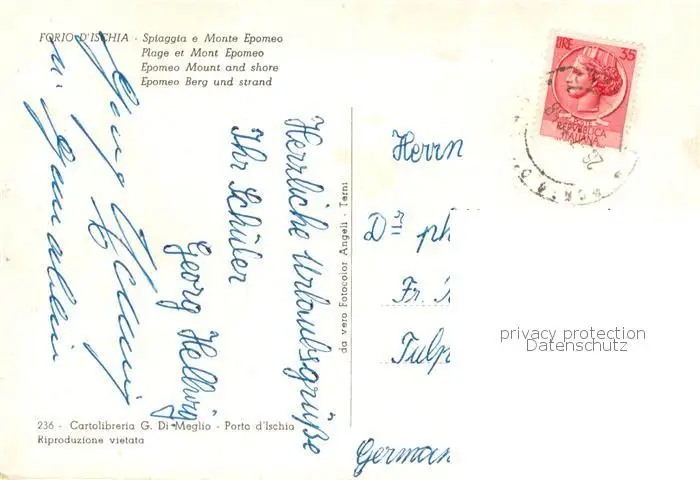 FORIO D'ISCHIA - Spiaggia e Monte Epomeo
Plage et Mont Epomeo
Epomeo Mount and shore
Epomeo Berg und strand
Herrliche Urlaubsgrüße
Ihr Schüler
Georg Hellwig
236 - Cartolibreria G. Di Meglio - Porto d'Ischia
Riproduzione vietata
da vero Fotocolor Angeli - Terni
LIRE 35
POSTE
REPVBBLICA
ITALIANA
Herrn
Dr ph
Fr.
Tulp
German
privacy protection
Datenschutz